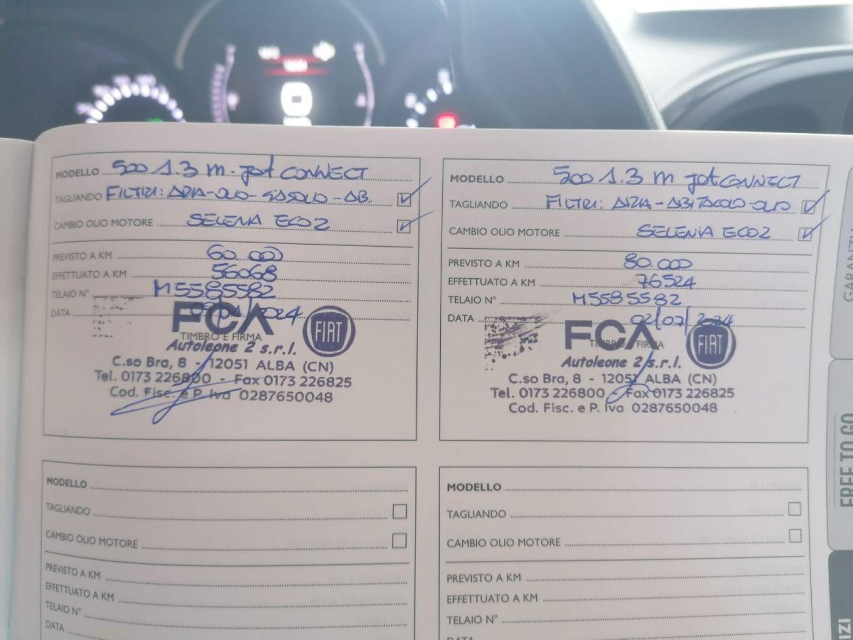 MODELLO 500 1.3 m. jet CONNECT
TAGLIANDO FILTRI: ARIA-OLIO-GASOLIO-AB.
CAMBIO OLIO MOTORE SELENIA ECO2
PREVISTO A KM 60.000
EFFETTUATO A KM 56068
TELAIO N° M5585582
DATA 2024
FCA FIAT
TIMBRO E FIRMA
Autoleone 2 s.r.l.
C.so Bra, 8 - 12051 ALBA (CN)
Tel. 0173 226800 - Fax 0173 226825
Cod. Fisc. e P. Iva 0287650048
MODELLO 500 1.3 m jet CONNECT
TAGLIANDO FILTRI: ARIA-ABITACOLO-OLIO
CAMBIO OLIO MOTORE SELENIA ECO2
PREVISTO A KM 80.000
EFFETTUATO A KM 76524
TELAIO N° M5585582
DATA 02/07/2024
FCA FIAT
TIMBRO E FIRMA
Autoleone 2 s.r.l.
C.so Bra, 8 - 12051 ALBA (CN)
Tel. 0173 226800 - Fax 0173 226825
Cod. Fisc. e P. Iva 0287650048
MODELLO
TAGLIANDO
CAMBIO OLIO MOTORE
PREVISTO A KM
EFFETTUATO A KM
TELAIO N°
DATA
MODELLO
TAGLIANDO
CAMBIO OLIO MOTORE
PREVISTO A KM
EFFETTUATO A KM
TELAIO N°
DATA
FREE TO GO